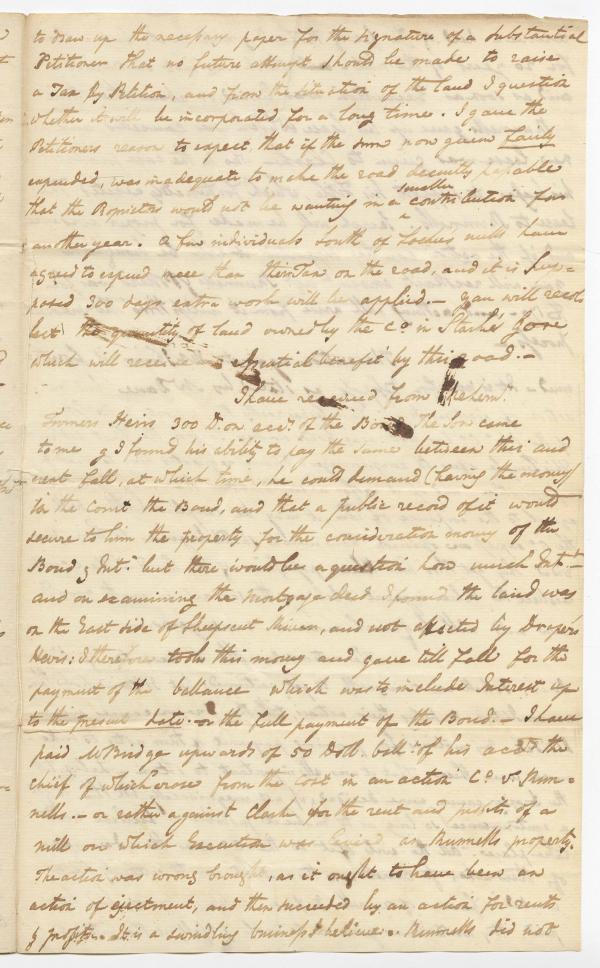 to draw up the necessary paper for the signature of a substantial
Petitioner that no future attempt should be made to raise
a Tax by Petition, and from the situation of the land I question
whether it will be incorporated for a long time. I gave the
Petitioners reason to expect that if the sum now given fairly
expended, was inadequate to make the road decently passable
smaller
that the Proprietors would not be wanting in a contribution for
another year. A few individuals South of mills have
agreed to expend more than their Tax on the road, and it is Sup=
posed 300 days extra work will be applied. – You will recol
lect the quantity of land owned by the Co. in Gore
which will receive essential benefit by this road. –
I have received from
Turners Heirs 300 D. on acct. of the Bond. The Son came
to me & I found his ability to pay the same between this and
next fall, at which time, he could demand (having the money)
in the Court the Bond, and that a public record of it would
secure to him the property for the consideration money of the
Bond & Int. but there would be a question how much Intt. –
and on examining the Mortgage deed I found the land was
on the East side of Sheepscut River, and not affected by Drapers
Heirs: I therefore took this money and gave till fall for the
payment of the ballance which was to include Interest up
to the present date or the full payment of the Bond. – I have
paid Mr Bridge upwards of 50 Doll. ball. of his acct. the
chief of which rose from the cost in an action Co. v. Run=
nells. – or rather against Clark for the rent and profits of a
mill on which Execution was levied as Runnells property.
The action was wrong brought, as it ought to have been an
action of ejectment, and then succeeded by an action for rents
& profits. It is a swindling business I believe. Runnells did not